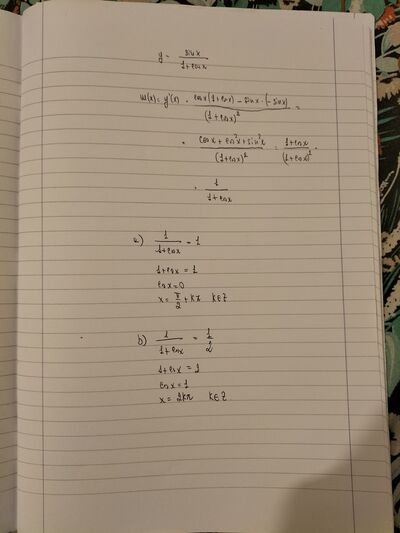 y = sin x / 1+cos x
m(x) = y'(x) = cos x (1+cos x) - sin x · (-sin x) / (1+cos x)² =
= cos x + cos² x + sin² x / (1+cos x)² = 1+cos x / (1+cos x)² =
= 1 / 1+cos x
a) 1 / 1+cos x = 1
1+cos x = 1
cos x = 0
x = π/2 + kπ k∈Z
b) 1 / 1+cos x = 1/2
1+cos x = 2
cos x = 1
x = 2kπ k∈Z